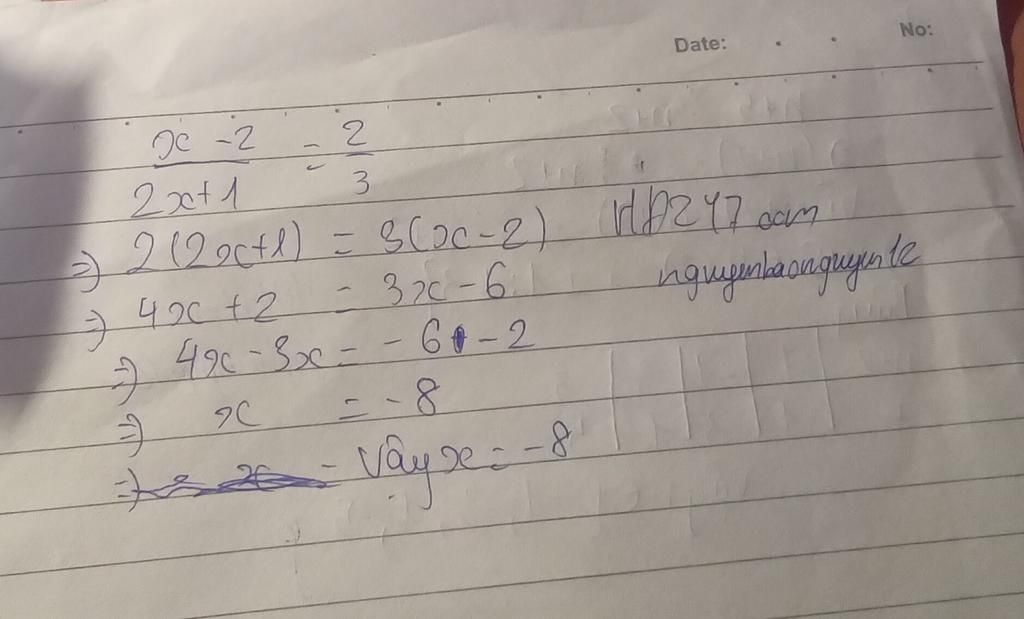 Date: . . No:
x - 2 / 2x + 1 = 2 / 3
=> 2(2x+1) = 3(x-2) HDZ47 acm
=> 4x + 2 = 3x - 6 nguyenbaonguyenle
=> 4x - 3x = - 6 - 2
=> x = - 8
=> Vây x = - 8